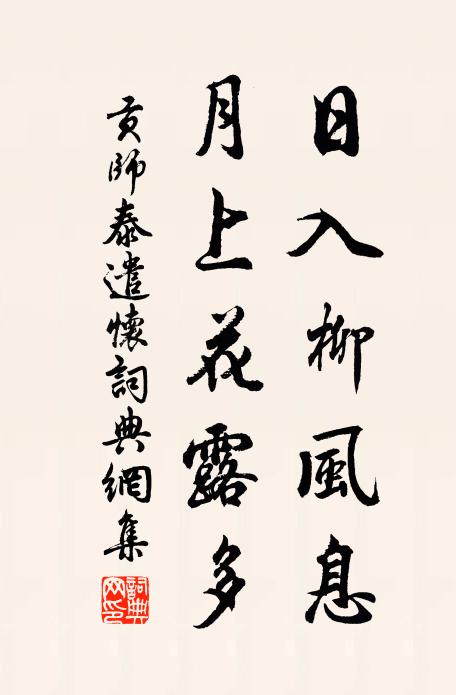 日入柳風息
月上花露多
貢師泰遣懷詞典網集
詞典
网印